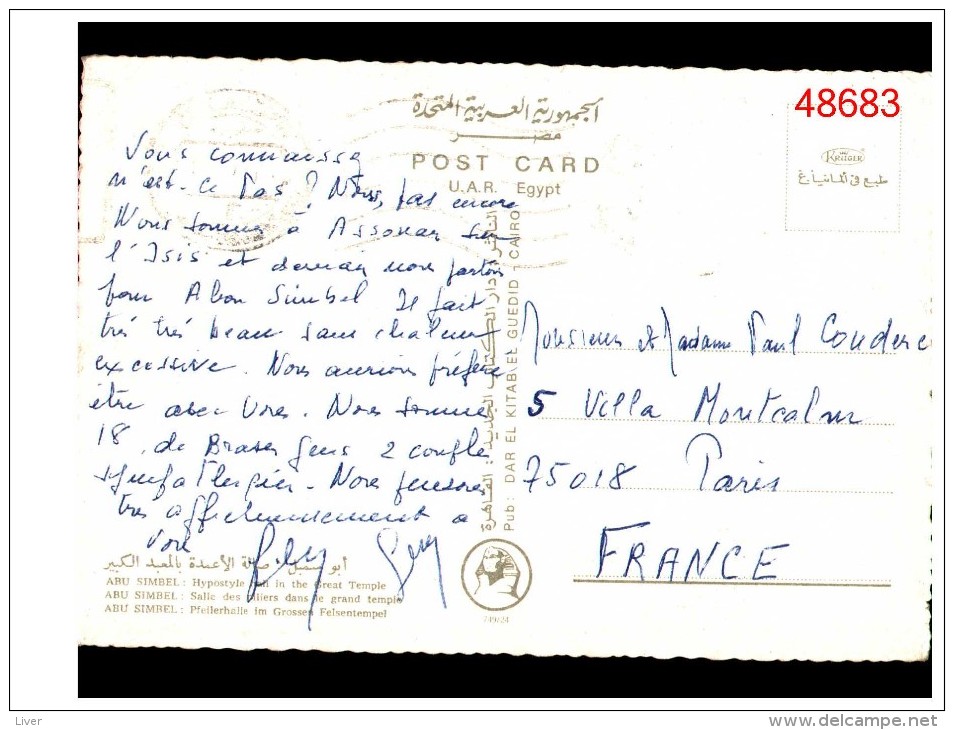 48683
الجمهورية العربية المتحدة
مصر
POST CARD
U.A.R. Egypt
KRÜGER
طبع في المانيا غ
Vous connaissez
n'est-ce pas? Nous, pas encore
Nous sommes à Assouan sur
l'Isis et demain nous partons
pour Abou Simbel Il fait
très très beau sans chaleur
excessive. Nous aurions préféré
être avec vous. Nous sommes
18, de Braves gens 2 couples
sympathiques. Nous pensons
très affectueusement à
vous
الناشر: دار الكتاب الجديد: القاهرة
Pub: DAR EL KITAB EL GUEDID - CAIRO
Monsieur et Madame Paul Couderc
5 Villa Montcalm
75018 Paris
FRANCE
أبو سمبل: صالة الأعمدة بالمعبد الكبير
ABU SIMBEL: Hypostyle Hall in the Great Temple
ABU SIMBEL: Salle des piliers dans le grand temple
ABU SIMBEL: Pfeilerhalle im Grossen Felsentempel
749/24
Liver
delcampe.net